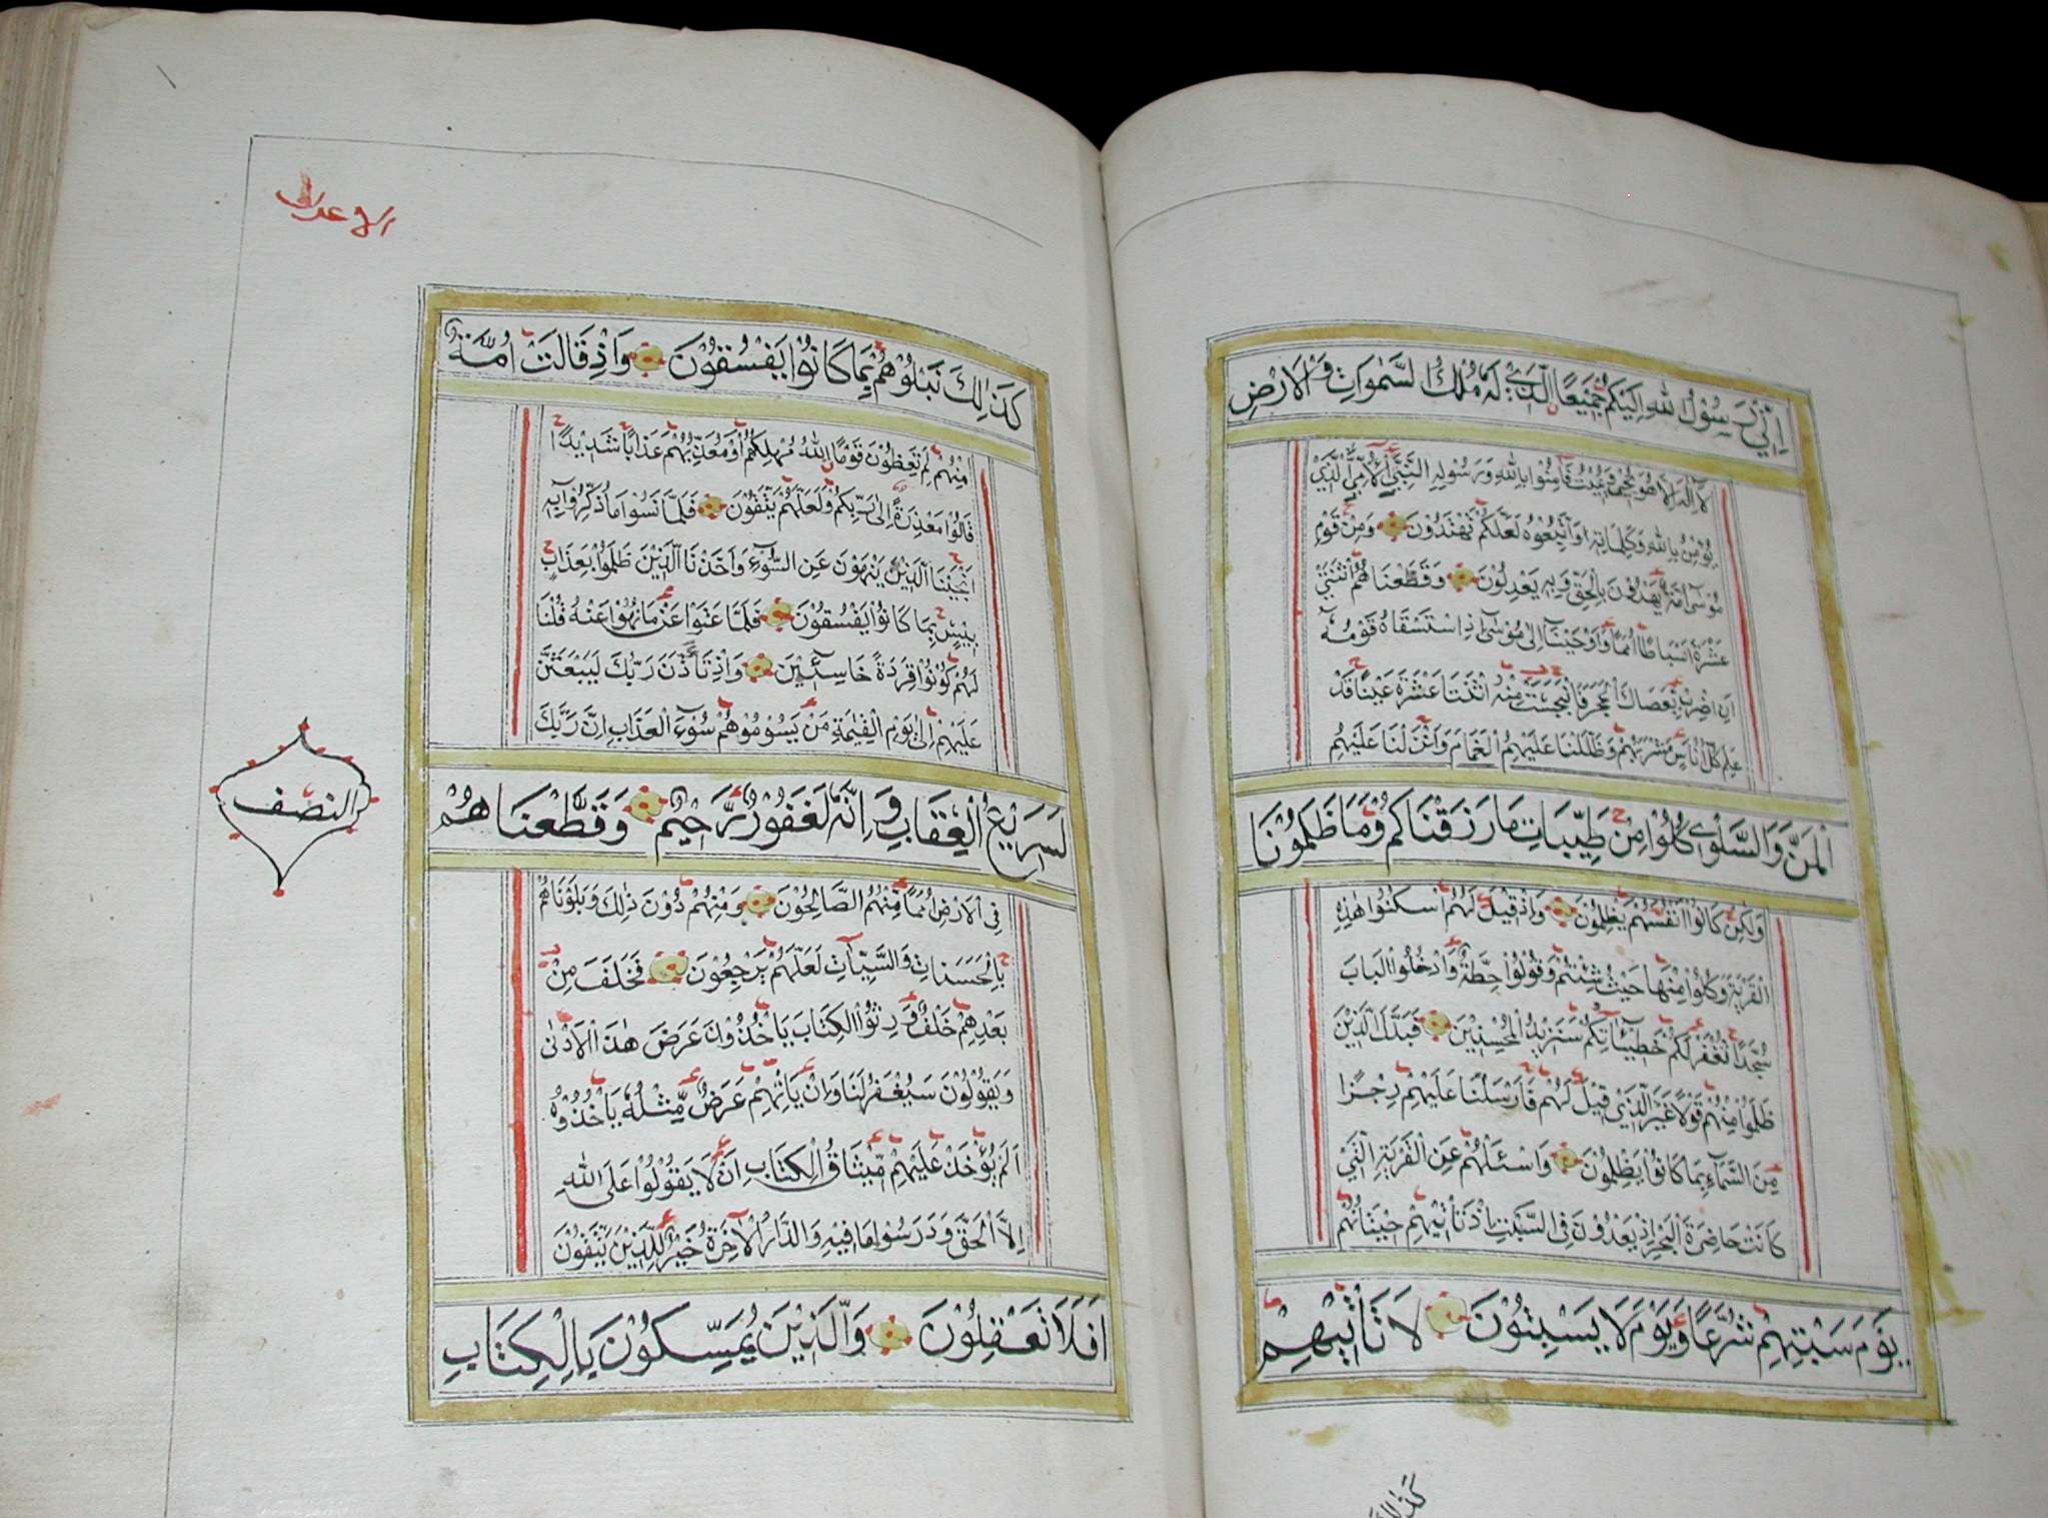 اِنِّي رَسُوْلُ اللهِ اِلَيْكُمْ جَمِيْعًا الَّذِيْ لَهٗ مُلْكُ السَّمٰوَاتِ وَالْاَرْضِ
لَا اِلٰهَ اِلَّا هُوَ يُحْيِي وَيُمِيْتُ فَآمِنُوْا بِاللهِ وَرَسُوْلِهِ النَّبِيِّ الْاُمِّيِّ الَّذِيْ
يُؤْمِنُ بِاللهِ وَكَلِمَاتِهِ وَاتَّبِعُوْهُ لَعَلَّكُمْ تَهْتَدُوْنَ وَمِنْ قَوْمِ
مُوْسٰى اُمَّةٌ يَهْدُوْنَ بِالْحَقِّ وَبِهِ يَعْدِلُوْنَ وَقَطَّعْنَاهُمُ اثْنَتَيْ
عَشْرَةَ اَسْبَاطًا اُمَمًا وَاَوْحَيْنَا اِلٰى مُوْسٰى اِذِ اسْتَسْقَاهُ قَوْمُهٗ
اَنِ اضْرِبْ بِعَصَاكَ الْحَجَرَ فَانْبَجَسَتْ مِنْهُ اثْنَتَا عَشْرَةَ عَيْنًا قَدْ
عَلِمَ كُلُّ اُنَاسٍ مَشْرَبَهُمْ وَظَلَّلْنَا عَلَيْهِمُ الْغَمَامَ وَاَنْزَلْنَا عَلَيْهِمُ
الْمَنَّ وَالسَّلْوٰى كُلُوْا مِنْ طَيِّبَاتِ مَا رَزَقْنَاكُمْ وَمَا ظَلَمُوْنَا
وَلٰكِنْ كَانُوْا اَنْفُسَهُمْ يَظْلِمُوْنَ وَاِذْ قِيْلَ لَهُمُ اسْكُنُوْا هٰذِهِ
الْقَرْيَةَ وَكُلُوْا مِنْهَا حَيْثُ شِئْتُمْ وَقُوْلُوْا حِطَّةٌ وَادْخُلُوا الْبَابَ
سُجَّدًا نَغْفِرْ لَكُمْ خَطِيْئَاتِكُمْ سَنَزِيْدُ الْمُحْسِنِيْنَ فَبَدَّلَ الَّذِيْنَ
ظَلَمُوْا مِنْهُمْ قَوْلًا غَيْرَ الَّذِيْ قِيْلَ لَهُمْ فَاَرْسَلْنَا عَلَيْهِمْ رِجْزًا
مِنَ السَّمَآءِ بِمَا كَانُوْا يَظْلِمُوْنَ وَاسْئَلْهُمْ عَنِ الْقَرْيَةِ الَّتِيْ
كَانَتْ حَاضِرَةَ الْبَحْرِ اِذْ يَعْدُوْنَ فِي السَّبْتِ اِذْ تَأْتِيْهِمْ حِيْتَانُهُمْ
يَوْمَ سَبْتِهِمْ شُرَّعًا وَيَوْمَ لَا يَسْبِتُوْنَ لَا تَأْتِيْهِمْ
كَذٰلِكَ
كَذٰلِكَ نَبْلُوْهُمْ بِمَا كَانُوْا يَفْسُقُوْنَ وَاِذْ قَالَتْ اُمَّةٌ
مِنْهُمْ لِمَ تَعِظُوْنَ قَوْمًا اللهُ مُهْلِكُهُمْ اَوْ مُعَذِّبُهُمْ عَذَابًا شَدِيْدًا
قَالُوْا مَعْذِرَةً اِلٰى رَبِّكُمْ وَلَعَلَّهُمْ يَتَّقُوْنَ فَلَمَّا نَسُوْا مَا ذُكِّرُوْا بِهِ
اَنْجَيْنَا الَّذِيْنَ يَنْهَوْنَ عَنِ السُّوْءِ وَاَخَذْنَا الَّذِيْنَ ظَلَمُوْا بِعَذَابٍ
بَئِيْسٍ بِمَا كَانُوْا يَفْسُقُوْنَ فَلَمَّا عَتَوْا عَنْ مَا نُهُوْا عَنْهُ قُلْنَا
لَهُمْ كُوْنُوْا قِرَدَةً خَاسِئِيْنَ وَاِذْ تَأَذَّنَ رَبُّكَ لَيَبْعَثَنَّ
عَلَيْهِمْ اِلٰى يَوْمِ الْقِيٰمَةِ مَنْ يَسُوْمُهُمْ سُوْءَ الْعَذَابِ اِنَّ رَبَّكَ
لَسَرِيْعُ الْعِقَابِ وَاِنَّهٗ لَغَفُوْرٌ رَّحِيْمٌ وَقَطَّعْنَاهُمْ
فِي الْاَرْضِ اُمَمًا مِّنْهُمُ الصَّالِحُوْنَ وَمِنْهُمْ دُوْنَ ذٰلِكَ وَبَلَوْنَاهُمْ
بِالْحَسَنَاتِ وَالسَّيِّاٰتِ لَعَلَّهُمْ يَرْجِعُوْنَ فَخَلَفَ مِنْ
بَعْدِهِمْ خَلْفٌ وَرِثُوا الْكِتَابَ يَاْخُذُوْنَ عَرَضَ هٰذَا الْاَدْنٰى
وَيَقُوْلُوْنَ سَيُغْفَرُ لَنَا وَاِنْ يَاْتِهِمْ عَرَضٌ مِّثْلُهٗ يَاْخُذُوْهُ
اَلَمْ يُؤْخَذْ عَلَيْهِمْ مِّيْثَاقُ الْكِتَابِ اَنْ لَا يَقُوْلُوْا عَلَى اللهِ
اِلَّا الْحَقَّ وَدَرَسُوْا مَا فِيْهِ وَالدَّارُ الْاٰخِرَةُ خَيْرٌ لِّلَّذِيْنَ يَتَّقُوْنَ
اَفَلَا تَعْقِلُوْنَ وَالَّذِيْنَ يُمَسِّكُوْنَ بِالْكِتَابِ
النصف